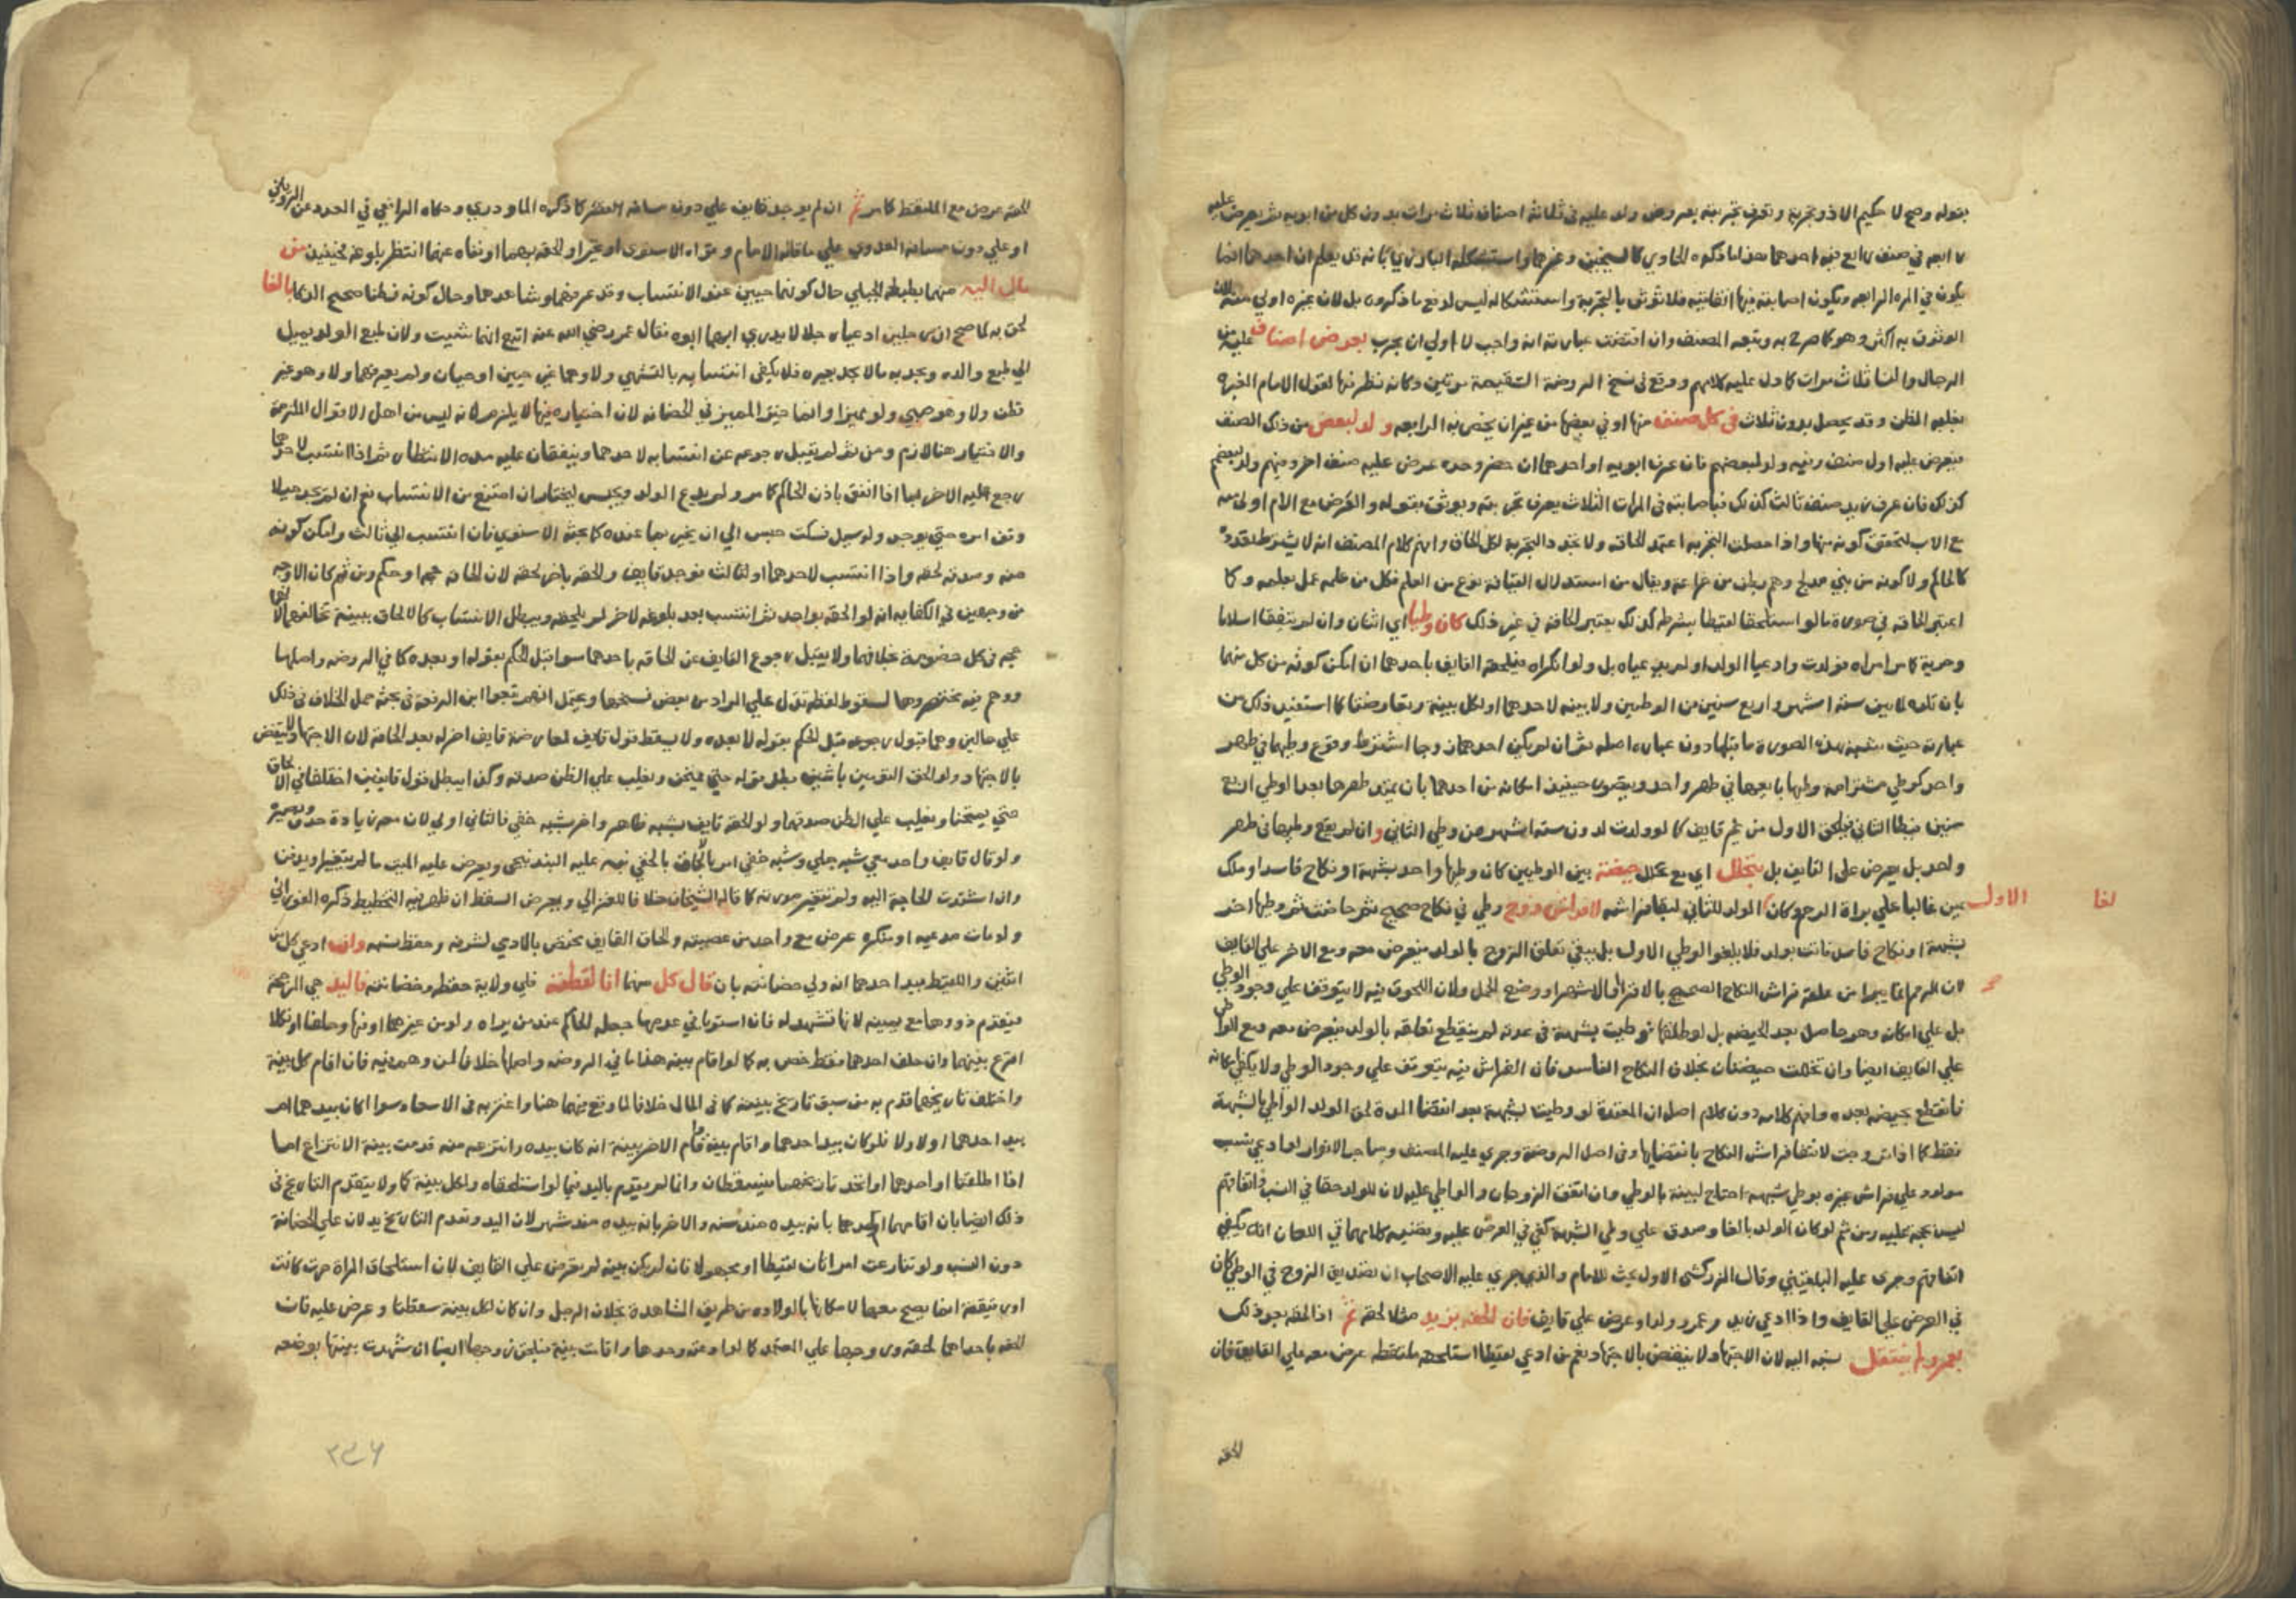 بقوله وصح لا حكيم الا ذو تجربة وتعرف تجربته بعرض ولد عليه في ثلاثة اصناف ثلاث مرات بدون كل من ابويه ثم يعرض عليه
رابعه في صنف رابع فيه احدهما هذا ما ذكره الحاوي كالشيخين وغيرهما واستشكله البارزي بانه قد يعلم ان احدهما انما
يكون في المره الرابعه وتكون اصابته فيها اتفاقيه فلا نوثق بالتجربة واستشكاله ليس لدفع ما ذكروه بل لان غيره اولي منه لان
الوثوق به اكثر وهو كما صرح به وتبعه المصنف وان اقتضت عبارته انه واجب لا اولي ان يجرب بعرض اصناف عليه من
الرجال والنسا ثلاث مرات كما دل عليه كلامهم ووقع في نسخ الروضة السقيمة مرتين وكانه نظر فيها لقول الامام العبره
بغلبه الظن وقد يحصل بدون ثلاث في كل صنف منها او في بعضها من غير ان يخص به الرابعه ولد لبعض من ذلك الصنف
فيعرض عليه اول صنف وفيه ولد لبعضهم فان عرف ابويه او احدهما ان حضر وحده عرض عليه صنف اخر وفيهم ولد لبعضهم
كذلك فان عرف زيد صنف ثالث كذلك فباصابته في المرات الثلاث يعرف تجربته ويوثق بقوله والعرض مع الام اولي منه
مع الاب لتحقق كونه منها واذا حصلت التجربه اعتمد الحاقه ولا تجدد التجربة لكل الحاق وافهم كلام المصنف انه لا يشترط تعدده
كالحاكم ولا كونه من بني مدلج وهم بطن من خزاعة ويقال من اسد لان القيافة نوع من العلم فكل من علمه عمل بعلمه وكما
اعتبر الحاقه في صورة ما لو استلحقا لقيطا بشرطه كذلك يعتبر الحاقه في غير ذلك كان وطيا اي اثنان وان لم يتفقا اسلاما
وحرية كامر امراه فولدت وادعيا الولد او لم يدعياه بل ولو انكراه فيلحقه القايف باحدهما ان امكن كونه من كل منهما
بان تلده لما بين ستة اشهر واربع سنين من الوطيين ولا بينه لاحدهما او لكل بينه وتعارضتا كما استفيد ذلك من
عبارته حيث شبه هذه الصورة بما قبلها دون عبارة اصله ثم ان لم يكن احدهما زوجا اشترط وقوع وطيهما في طهر
واحد كوطي مشتر امة وطيها بايعها في طهر واحد ويتصور حينئذ امكانه من احدهما بان يمتد طهرها بعد الوطي اربع
سنين فيطا الثاني فيلحق الاول من غير قايف كما لو ولدت لدون ستة اشهر من وطي الثاني وان لم يقع وطيهما في طهر
واحد بل يعرض على القايف بل يتخلل اي مع تخلل حيضة بين الوطيين كان وطيها واحد بشبهة او نكاح فاسد او ملك
يمين غالبا علي براة الرحم وكان الولد للثاني لبقا فراشه لا فراش زوج وطي في نكاح صحيح ثم حاضت ثم وطيها اخر
الاول
لغا
بشبهة او نكاح فاسد فاتت بولد فلا يلغو الوطي الاول بل يبقي تعلق الزوج بالولد فيعرض معه ومع الاخر علي القايف
لان الرحم انما يبرا من علقة فراش النكاح الصحيح بالاقرا او الاشهر او وضع الحمل ولان اللحوق فيه لا يتوقف علي وجود الوطي
بل علي امكانه وهو حاصل بعد الحيضه بل لو طلقها ثم وطيت بشبهة في عدته لم ينقطع تعلقه بالولد فيعرض معه ومع الواطي
علي القايف ايضا وان تخللت حيضتان بخلاف النكاح الفاسد فان الفراش فيه يتوقف علي وجود الوطي ولا يكفي امكانه
فانقطع بحيضه بعده وافهم كلامه دون كلام اصله ان المعتدة لو وطيت بشبهة بعد انقضا العدة لحق الولد الواطي بالشبهة
فقط كما اذا تزوجت لانتفا فراش النكاح بانقضايها وفي اصل الروضة وجري عليه المصنف وصاحب الانوار لو ادعي نسب
مولود علي فراش غيره بوطي شبهة احتاج لبينة بالوطي وان اتفق الزوجان والواطي عليه لان للولد حقا في النسب واتفاقهم
ليس بحجة عليه ومن ثم لو كان الولد بالغا وصدق علي وطي الشبهة كفي في العرض عليه وقضية كلامهما في اللعان انه يكفي
اتفاقهم وجري عليه البلقيني وقال الزركشي الاول بحث للامام والذي جري عليه الاصحاب ان تصديق الزوج في الوطي كان
في العرض علي القايف واذا ادعي زيد وعمرو ولدا وعرض علي قايف فان الحقه بزيد مثلا لحقه ثم اذا الحقه بعد ذلك
بعمرو لم ينتقل نسبه اليه لان الاجتهاد لا ينقض بالاجتهاد نعم من ادعي لقيطا استلحقه ملتقطه عرض معه علي القايف فان
الحقه
الحقه عرض مع الملتقط كامر ثم ان لم يوجد قايف علي دون مسافة القصر كما ذكره الماوردي وحكاه الرافعي في العدد عن الروياني
او علي دون مسافة العدوي علي ما قاله الامام وعزاه الاسنوي او تحير او الحقه بهما او نفاه عنهما انتظر بلوغه فحينئذ من
مال اليه منهما بطبعه الجبلي حال كونهما حيين عند الانتساب وقد عرفهما وشاهدهما وحال كونه فطنا صحيح الذكا بالغا
لحق به لما صح ان رجلين ادعيا رجلا لا يدري ايهما ابوه فقال عمر رضي الله عنه اتبع ايهما شيت ولان طبع الولد يميل
الي طبع والده ويجد به ما لا يجد بغيره فلا يكفي انتسابه بالتشهي ولا وهما غير حيين او حيان ولم يعرفهما ولا وهو غير
فطن ولا وهو صبي ولو مميزا وانما خير المميز في الحضانه لان اختياره فيها لا يلزم ولانه ليس من اهل الاقوال الملزمة
والاختيار هنا لازم ومن ثم لم يقبل رجوعه عن انتسابه لاحدهما وينفقان عليه مده الانتظار ثم اذا انتسب لاحدهما
رجع عليه الاخر بما اذا انفق باذن الحاكم كامر ولم يدع الولد ويحبس ليختار ان امتنع من الانتساب نعم ان لم يجد ميلا
وقف امره حتي يوجد ولو سيل فسكت حبس الي ان يخبر بما عنده كما بحثه الاسنوي فان انتسب الي ثالث وامكن كونه
منه وصدقه لحقه واذا انتسب لاحدهما او لثالث فوجد قايف والحقه باخر لحقه لان الحاقه حجه او حكم ومن ثم كان الاوجه
من وجهين في الكفايه انه لو الحقه بواحد ثم انتسب بعد بلوغه لاخر لم يلحقه ويبطل الانتساب كالالحاق ببينة تخالفهما لانها
حجه في كل خصومة بخلافهما ولا يقبل رجوع القايف عن الحاقه باحدهما سوا قبل الحكم بقوله او بعده كما في الروضه واصلها
ووهم فيه مختصروها لسقوط لفظه تدل علي المراد من بعض نسخها ويحتمل انهم تبعوا ابن الرفعة في بحثه حمل الخلاف في ذلك
علي حالين وهما قبول رجوعه قبل الحكم بقوله لا بعده ولا يسقط قول قايف لمعارضة قايف اخر له بعد الحاقه لان الاجتهاد لا ينقض
بالاجتهاد ولو الحق التومين باثنين بطل قوله حتي يمتحن ويغلب علي الظن صدقه وكذا يبطل قول قايفين اختلفا في الالحاق
حتي يمتحنا ويغلب علي الظن صدقهما ولو الحقه قايف بشبه ظاهر واخر بشبه خفي فالثاني اولي لان معه زيادة حذق وبصيرة
ولو قال قايف واحد معي شبه جلي وشبه خفي امر بالالحاق بالخفي نبه عليه البندنيجي ويعرض عليه الميت ما لم يتغير او يدفن
وان اشتدت الحاجة اليه ولم تتغير صورته كما قاله الشيخان خلافا للغزالي ويعرض السقط ان ظهر فيه التخطيط ذكره الفوراني
ولو مات مدعيه او منكره عرض مع واحد من عصبته والحاق القايف يختص بالادمي لشرفه وحفظ نسبه وان ادعي كل من
اثنين واللقيط بيد احدهما انه ولي حضانته بان قال كل منهما انا لقطته فلي ولاية حفظه وحضانته فاليد هي المرجحة
فيقدم ذووها مع يمينه لانها تشهد له فان استويا في عدمها جعله الحاكم عند من يراه ولو من غيرهما او فيها وحلفا او نكلا
اقرع بينهما وان حلف احدهما فقط خص به كما لو اقام بينه هذا ما في الروضه واصلها خلافا لمن وهم فيه فان اقام كل بينه
واختلف تاريخهما قدم به من سبق تاريخ بينته كما في المال خلافا لما وقع فيهما هنا واغتر به في الاسعاد سوا كان بيدهما ام
بيد احدهما او لا ولا فلو كان بيد احدهما واقام بينة واقام الاخر بينة انه كان بيده وانتزعه منه قدمت بينة الانتزاع اما
اذا اطلقتا او احدهما او اتحد تاريخهما فيسقطان وانما لم يقدم باليد فيما لو استلحقاه ولكل بينة كما ولا بتقدم التاريخ في
ذلك ايضا بان اقامها احدهما بانه بيده منذ سنه والاخر بانه بيده منذ شهر لان اليد وتقدم التاريخ يدلان علي الحضانة
دون النسب ولو تنازعت امراتان لقيطا او مجهولا فان لم يكن بينه لم يعرض علي القايف لان استلحاق المراة حرة كانت
او رقيقة انما يصح معها لامكانها بالولاده من طريق المشاهدة بخلاف الرجل وان كان لكل بينة سقطتا وعرض عليه فان
الحقه باحداهما لحقته وزوجها علي المعتمد كما لو ادعته وحدها واقامت بينة فيلحق زوجها ايضا ان شهدت بينتها بوضعه
٣٣٦